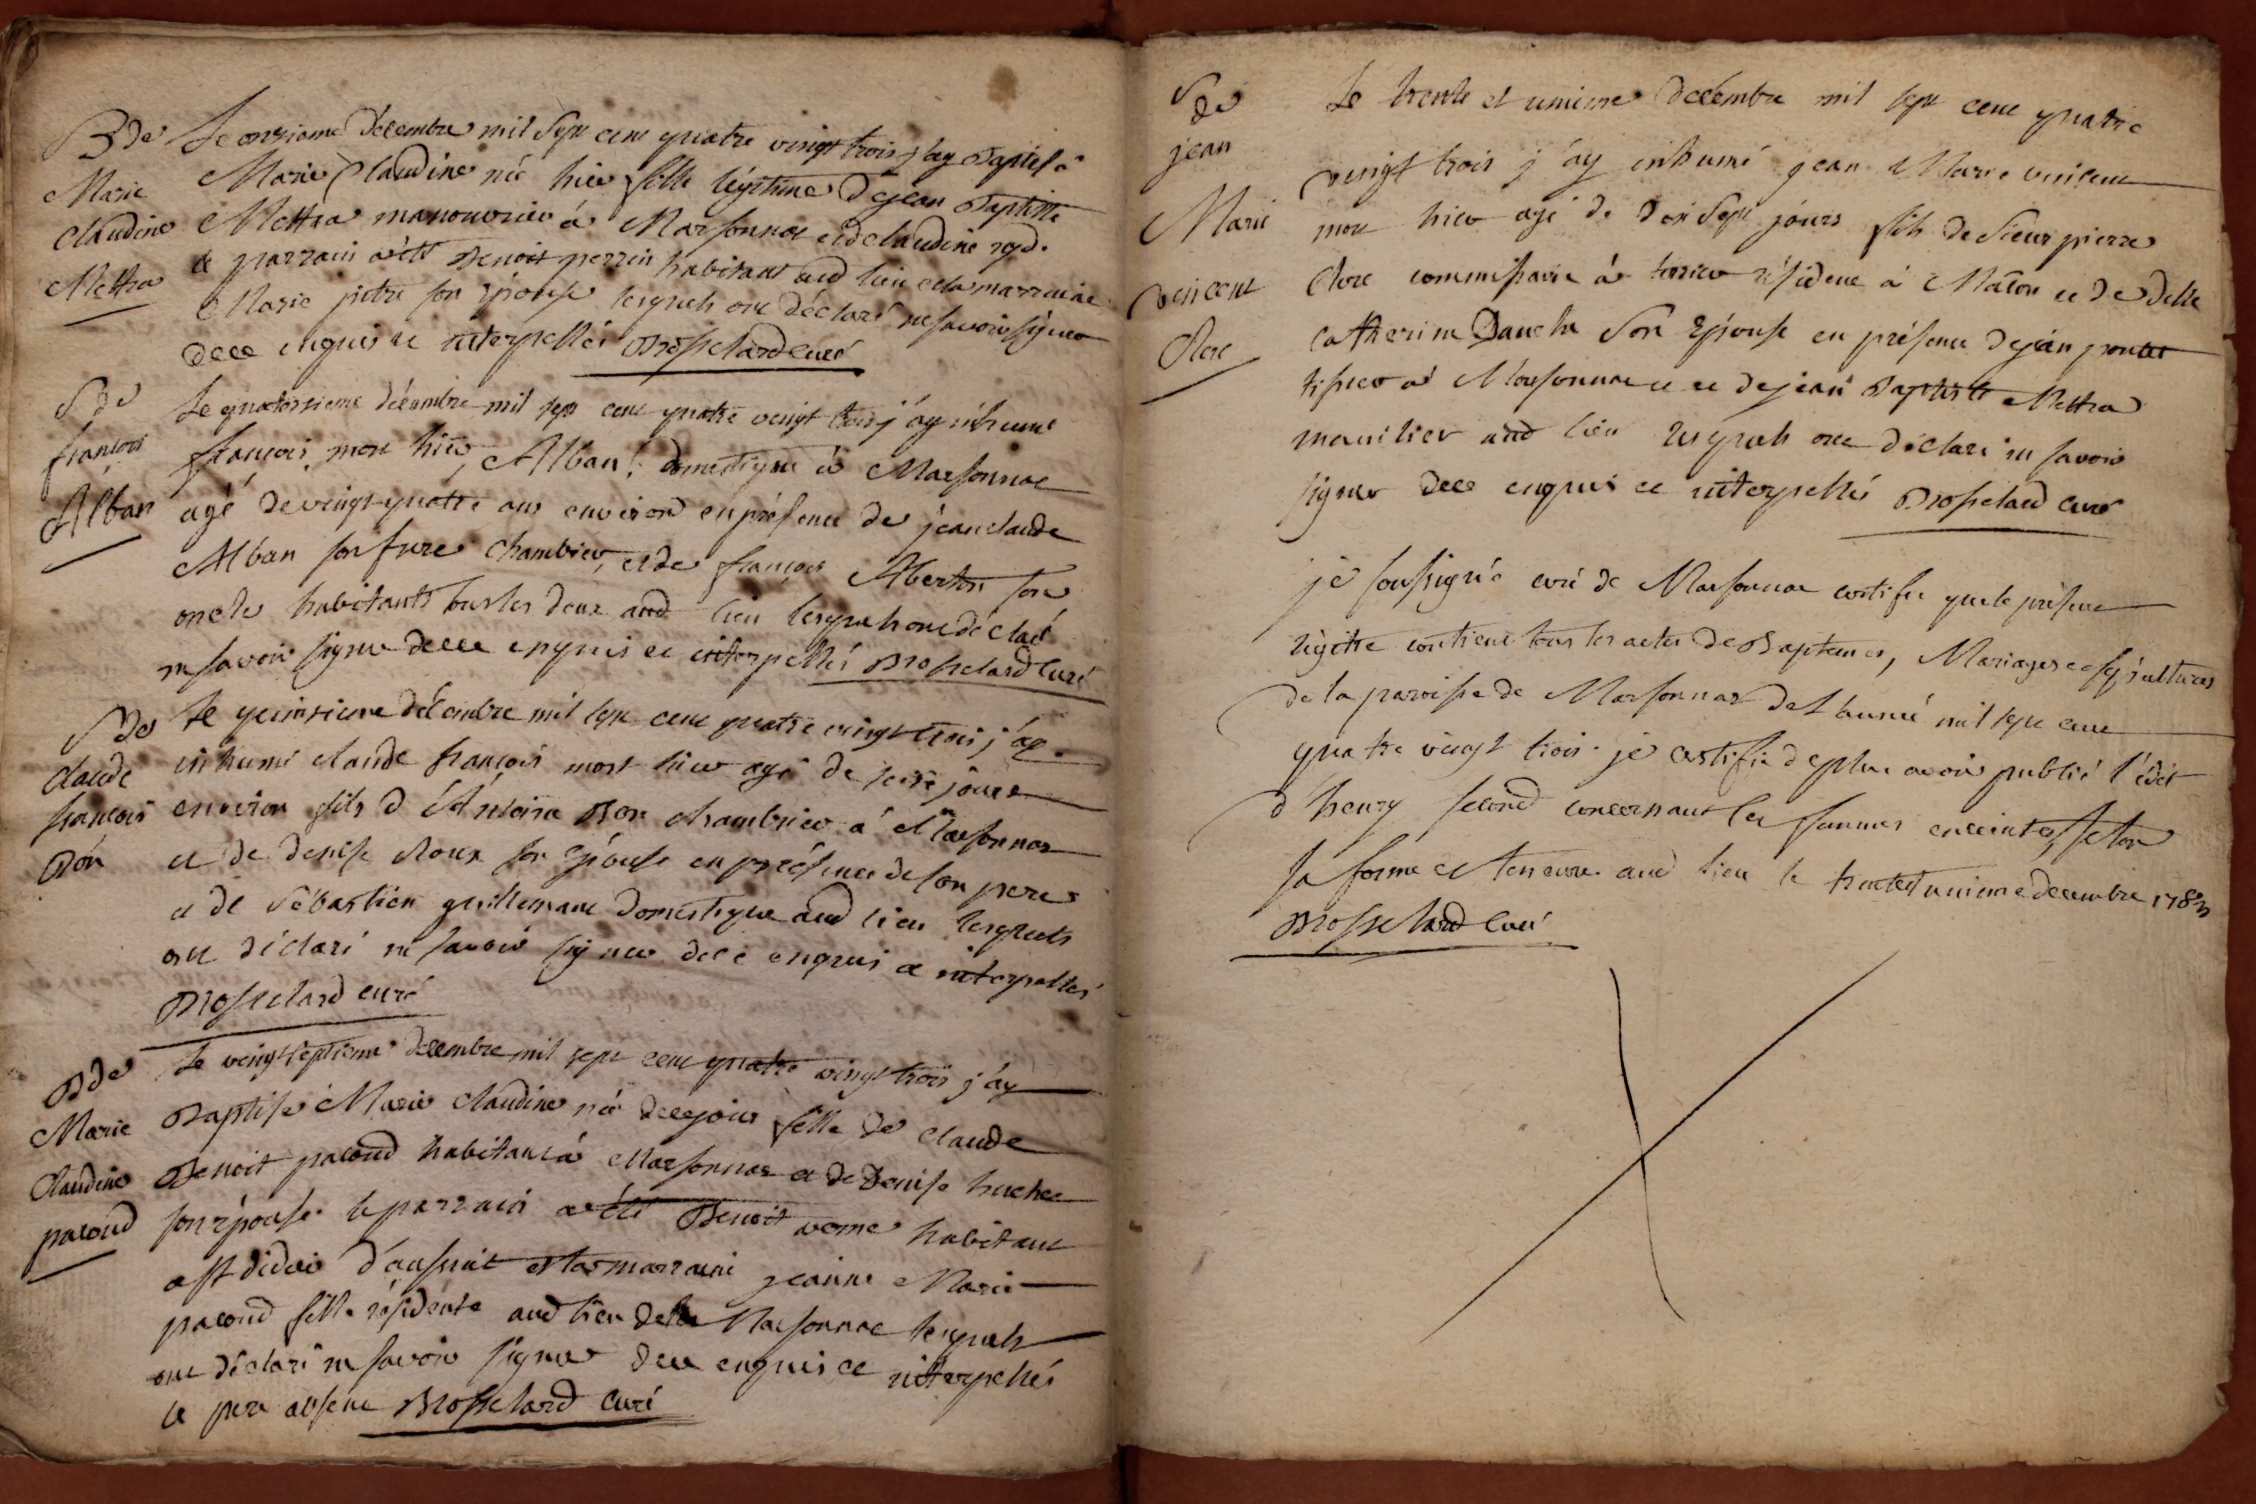 B de
Marie
Claudine
Mettra
Le onzieme décembre mil sept cent quatre vingt trois j'ay baptisé
Marie Claudine née hier fille légitime de jean baptiste
Mettra manouvrier à Marsonnas et de claudine
le parrain a été Benoit perrin habitant aud lieu et la marraine
Marie son épouse lesquels ont déclaré ne savoir signer
de ce enquis et interpellés Brosselard curé
S de
françois
Alban
Le quatorzieme décembre mil sept cent quatre vingt trois j'ay inhumé
françois, mort hier, Alban, domestique à Marsonnas
agé de vingt quatre ans environ en présence de jean claude
Alban son frere chambrier, et de françois son
oncle habitants tous les deux aud lieu lesquels ont déclaré
ne savoir signer de ce enquis et interpellés Brosselard Curé
S de
claude
françois
Bon
Le quinzieme décembre mil sept cent quatre vingt trois j'ay
inhumé claude françois mort hier agé de seize jours
environ fils d'Antoine Bon chambrier à Marsonnas
et de denise Roux son épouse en présence de son pere
et de Sébastien guillemant domestique aud lieu lesquels
ont déclaré ne savoir signer de ce enquis et interpellés
Brosselard curé
B de
Marie
Claudine
pacoud
Le vingt septieme décembre mil sept cent quatre vingt trois j'ay
Baptisé Marie Claudine née de ce jour fille de claude
Benoit pacoud habitant à Marsonnas et de Denise huchet
son épouse le parrain a été Benoit verne habitant
a St didier d'aussiat et la marraine jeanne Marie
pacoud fille résidente aud lieu de Marsonnas lesquels
ont déclaré ne savoir signer de ce enquis et interpellés
le pere absent Brosselard curé
S
de
jean
Marie
vincent
Clerc
Le trente et unieme décembre mil sept cent quatre
vingt trois j'ay inhumé jean Marie vincent
mort hier agé de dix sept jours fils de Sieur pierre
Clerc commissaire à terrier résident à Mâcon et de delle
Catherine Daucla Son Epouse en présence de jean
tissier à Marsonnas et de jean Baptiste Mettra
aud lieu lesquels ont déclaré ne savoir
signer de ce enquis et interpellés Brosselard curé
je soussigné curé de Marsonnas certifie que le présent
régitre contient tous les actes de Baptemes, Mariages et sépultures
de la paroisse de Marsonnas de l'année mil sept cent
quatre vingt trois. je certifie de plus avoir publié l'édit
d'henry second concernant les femmes enceintes, selon
sa forme et teneure. aud lieu le trente et unieme décembre 1783
Brosselard Curé